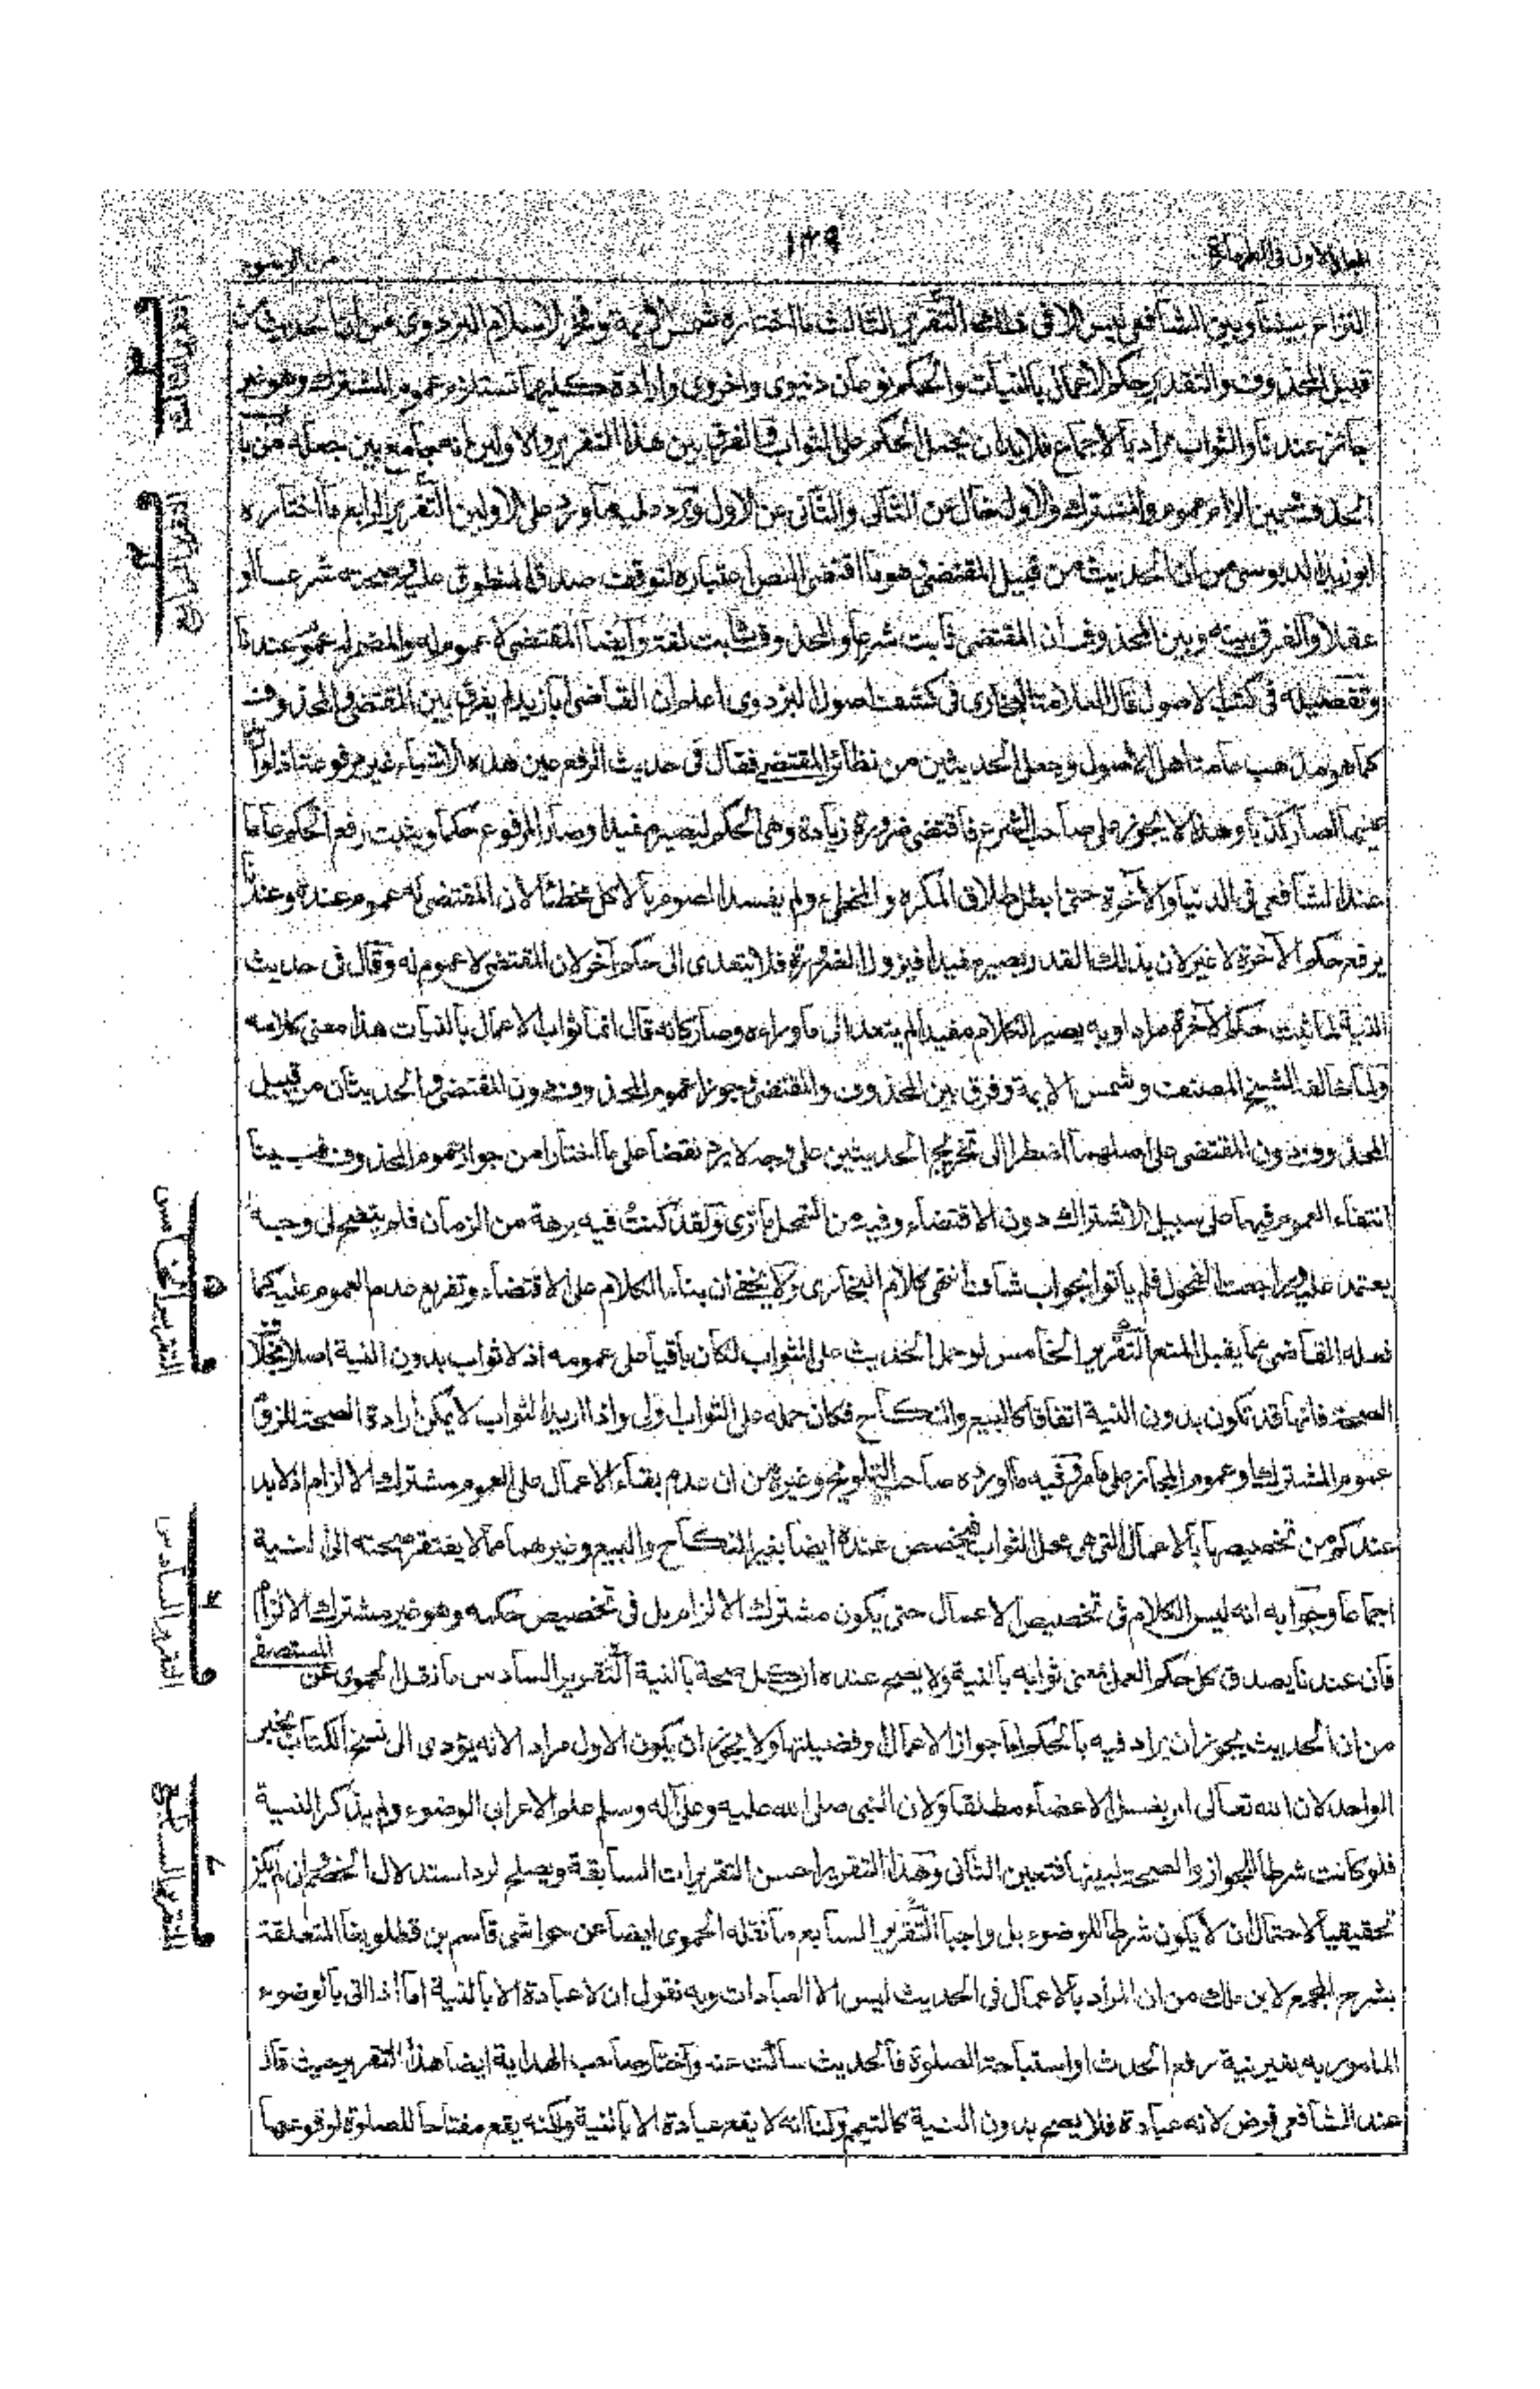 ١٣٩
النزاع بيننا وبين الشافعي ليس الا في ذلك التقرير الثالث ما اختاره شمس الايمة وفخر الاسلام البزدوي من ان الحديث من
قبيل المحذوف والتقدير حكم الاعمال بالنيات والحكم نوعان دنيوي واخروي وارادة كليهما تستلزم عموم المشترك وهو غير
جائز عندنا والثواب مراد بالاجماع فلا بد ان يحمل الحكم على الثواب والفرق بين هذا التقرير والاولين انه جامع بين جعله من باب
المحذوف وبين الزام عموم المشترك والاول خال عن الثاني والثاني عن الاول ويرد عليه ما ورد على الاولين التقرير الرابع ما اختاره
ابو زيد الدبوسي من ان الحديث من قبيل المقتضى هو ما اقتضى النص اعتباره لتوقف صدق المنطوق عليه او صحته شرعا او
عقلا والفرق بينه وبين المحذوف ان المقتضى ثابت شرعا والمحذوف ثابت لغة وايضا المقتضى لا عموم له والمضمر له عموم عندنا
وتفصيله في كتب الاصول قال العلامة البخاري في كشف اصول البزدوي اعلم ان القاضي ابا زيد لم يفرق بين المقتضى والمحذوف
كما هو مذهب عامة اهل الاصول وجعل الحديثين من نظائر المقتضى فقال في حديث الرفع عين هذه الاشياء غير مرفوعة فلو اريد
عينها لصار كذبا وهذا لا يجوز على صاحب الشرع فاقتضى ضرورة زيادة وهي الحكم ليصير مفيدا وصار المرفوع حكما ويثبت رفع الحكم عاما
عند الشافعي في الدنيا والآخرة حتى ابطل طلاق المكره والمخطئ ولم يفسد الصوم بالاكل مخطئا لان المقتضى له عموم عنده وعندنا
يرفع حكم الآخرة لا غير لان بذلك القدر يصير مفيدا فيزول الضرورة فلا يتعدى الى حكم آخر لان المقتضى لا عموم له وقال في حديث
النية لما ثبت حكم الآخرة مرادا وبه يصير الكلام مفيدا لم يتعد الى ما وراءه وصار كانه قال انما ثواب الاعمال بالنيات هذا معنى كلامه
ولما خالف الشيخ المصنف وشمس الايمة وفرق بين المحذوف والمقتضى وجوزا عموم المحذوف دون المقتضى والحديثان من قبيل
المحذوف دون المقتضى على اصلهما اضطرا الى تخريج الحديثين على وجه لا يرد نقضا على ما اختارا من جواز عموم المحذوف فبينا
انتفاء العموم فيهما على سبيل الاشتراك دون الاقتضاء وفيه من التمحل ما ترى ولقد كنت فيه برهة من الزمان فلم يتضح لي وجه
يعتمد عليه وراجعت الفحول فلم ياتوا بجواب شاف انتهى كلام البخاري ولا يخفى ان بناء الكلام على الاقتضاء وتفريع عدم العموم عليه كما
فعله القاضي مما يقبل المنع التقرير الخامس لو حمل الحديث على الثواب لكان باقيا على عمومه اذ لا ثواب بدون النية اصلا بخلاف
الصحة فانها قد تكون بدون النية اتفاقا كالبيع والنكاح فكان حمله على الثواب اولى واذا اريد الثواب لا يمكن ارادة الصحة للزوم
عموم المشترك او عموم المجاز على ما مر وفيه ما اورده صاحب التلويح وغيره من ان عدم بقاء الاعمال على العموم مشترك الالزام اذ لا بد
عندكم من تخصيصها بالاعمال التي هي محل الثواب فيخصص عنده ايضا بغير النكاح والبيع وغيرهما مما لا يفتقر صحته الى النية
اجماعا وجوابه انه ليس الكلام في تخصيص الاعمال حتى يكون مشترك الالزام بل في تخصيص حكمه وهو غير مشترك الالزام
فان عندنا يصدق كل حكم العمل بمعنى ثوابه بالنية ولا يصح عنده ان كل صحة بالنية التقرير السادس ما نقل الحموي عن المستصفى
من ان الحديث يجوز ان يراد فيه بالحكم اما جواز الاعمال او فضيلتها ولا يجوز ان يكون الاول مرادا لانه يؤدي الى نسخ الكتاب بخبر
الواحد لان الله تعالى امر بغسل الاعضاء مطلقا ولان النبي صلى الله عليه وعلى آله وسلم علم الاعرابي الوضوء ولم يذكر النية
فلو كانت شرطا للجواز والصحة لبينها فتعين الثاني وهذا التقرير احسن التقريرات السابقة ويصلح لرد استدلال الخصم ان لم يكن
تحقيقيا لاحتمال ان لا يكون شرطا للوضوء بل واجبا التقرير السابع ما نقله الحموي ايضا عن حواشي قاسم بن قطلوبغا المتعلقة
بشرح المجمع لابن ملك من ان المراد بالاعمال في الحديث ليس الا العبادات وبه نقول ان لا عبادة الا بالنية اما اذا اتى بالوضوء
المامور به بغير نية رفع الحدث او استباحة الصلوة فالحديث ساكت عنه واختار صاحب الهداية ايضا هذا التقرير حيث قال
عند الشافعي فرض لانه عبادة فلا يصح بدون النية كالتيمم ولنا انه لا يقع عبادة الا بالنية ولكنه يقع مفتاحا للصلوة لوقوعها
التقرير الخامس
التقرير السادس
التقرير السابع